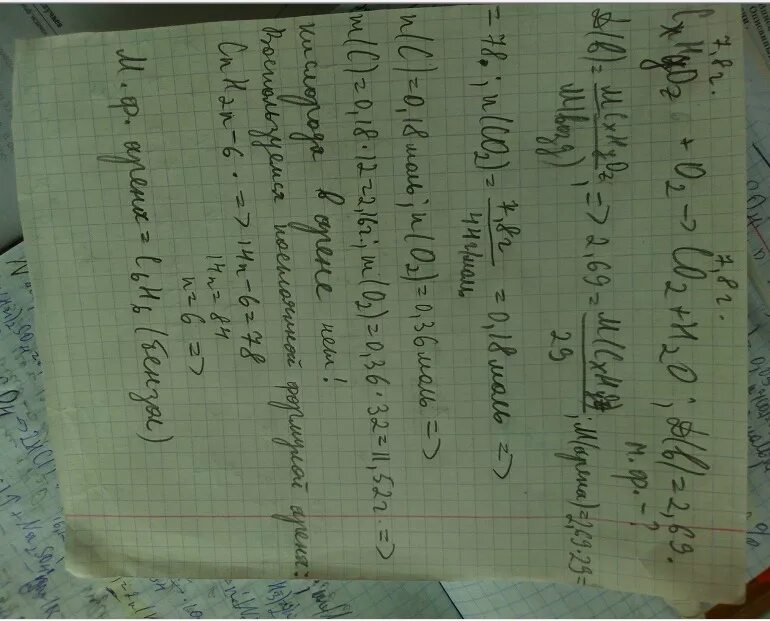 7,8г.                7,8г.
CxHyOz + O2 → CO2 + H2O ; D(b) = 2,69.
м. ф. - ?
D(b) = M(CxHyOz) / M(возд) ; => 2,69 = M(CxHyOz) / 29 ; M(арена) = 2,69·29 =
= 78. ; n(CO2) = 7,8г / 44г/моль = 0,18 моль =>
n(C) = 0,18 моль ; n(O2) = 0,36 моль =>
m(C) = 0,18·12 = 2,16г ; m(O2) = 0,36·32 = 11,52г. =>
кислорода в арене нет!
Воспользуемся постоянной формулой арена:
CnH2n-6. => 14n-6=78
14n=84
n=6 =>
М. ф. арена = C6H6 (бензол)